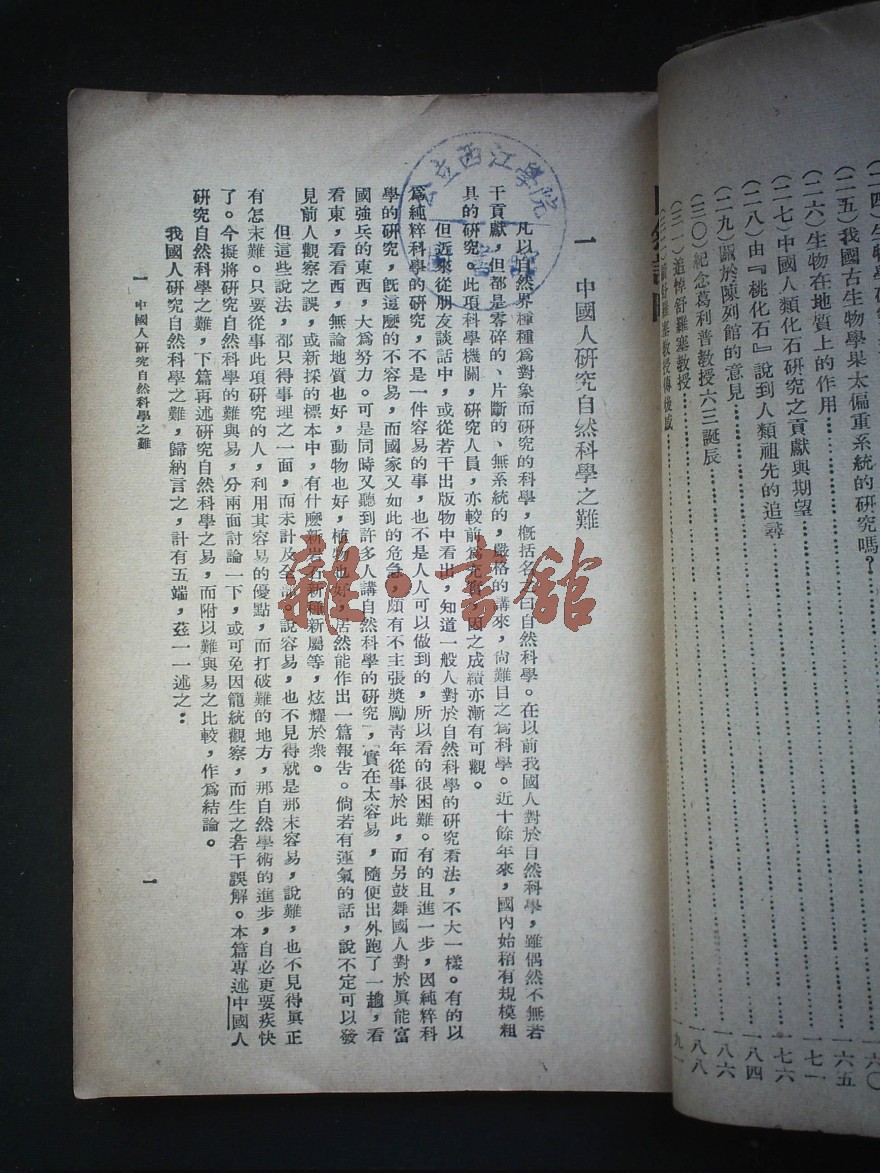 (二五)我國古生物學果太偏重系統的研究嗎?……一六五
(二六)生物在地質上的作用……一七一
(二七)中國人類化石研究之貢獻與期望……一七六
(二八)由『桃化石』說到人類祖先的追尋……一八四
(二九)關於陳列館的意見……一八六
(三〇)紀念葛利普教授六三誕辰……一八八
(三一)追悼舒羅塞教授……一九一
公立西江學院
一 中國人研究自然科學之難
凡以自然界種種爲對象而研究的科學,槪括名之曰自然科學。在以前我國人對於自然科學,雖偶然不無若
干貢獻,但都是零碎的、片斷的、無系統的,嚴格的講來,尙難目之爲科學。近十餘年來,國內始稍有規模粗
具的研究。此項科學機關,研究人員,亦較前爲充實,因之成績亦漸有可觀。
但近來從朋友談話中,或從若干出版物中看出,知道一般人對於自然科學的研究看法,不大一樣。有的以
爲純粹科學的研究,不是一件容易的事,也不是人人可以做到的,所以看的很困難。有的且進一步,因純粹科
學的研究,旣這麼的不容易,而國家又如此的危急,頗有不主張獎勵靑年從事於此,而另鼓舞國人對於眞能富
國強兵的東西,大爲努力。可是同時又聽到許多人講自然科學的研究,實在太容易,隨便出外跑了一趟,看
看東,看看西,無論地質也好,動物也好,植物也好,居然能作出一篇報告。倘若有運氣的話,說不定可以發
見前人觀察之誤,或新採的標本中,有什麼新岩石新種新屬等,炫耀於衆。
但這些說法,都只得事理之一面,而未計及全部。說容易,也不見得就是那末容易,說難,也不見得眞正
有怎末難。只要從事此項研究的人,利用其容易的優點,而打破難的地方,那自然學術的進步,自必更要疾快
了。今擬將研究自然科學的難與易,分兩面討論一下,或可免因籠統觀察,而生之若干誤解。本篇專述中國人
研究自然科學之難,下篇再述研究自然科學之易,而附以難與易之比較,作爲結論。
我國人研究自然科學之難,歸納言之,計有五端,茲一一述之:
一 中國人研究自然科學之難
一
雜·書館